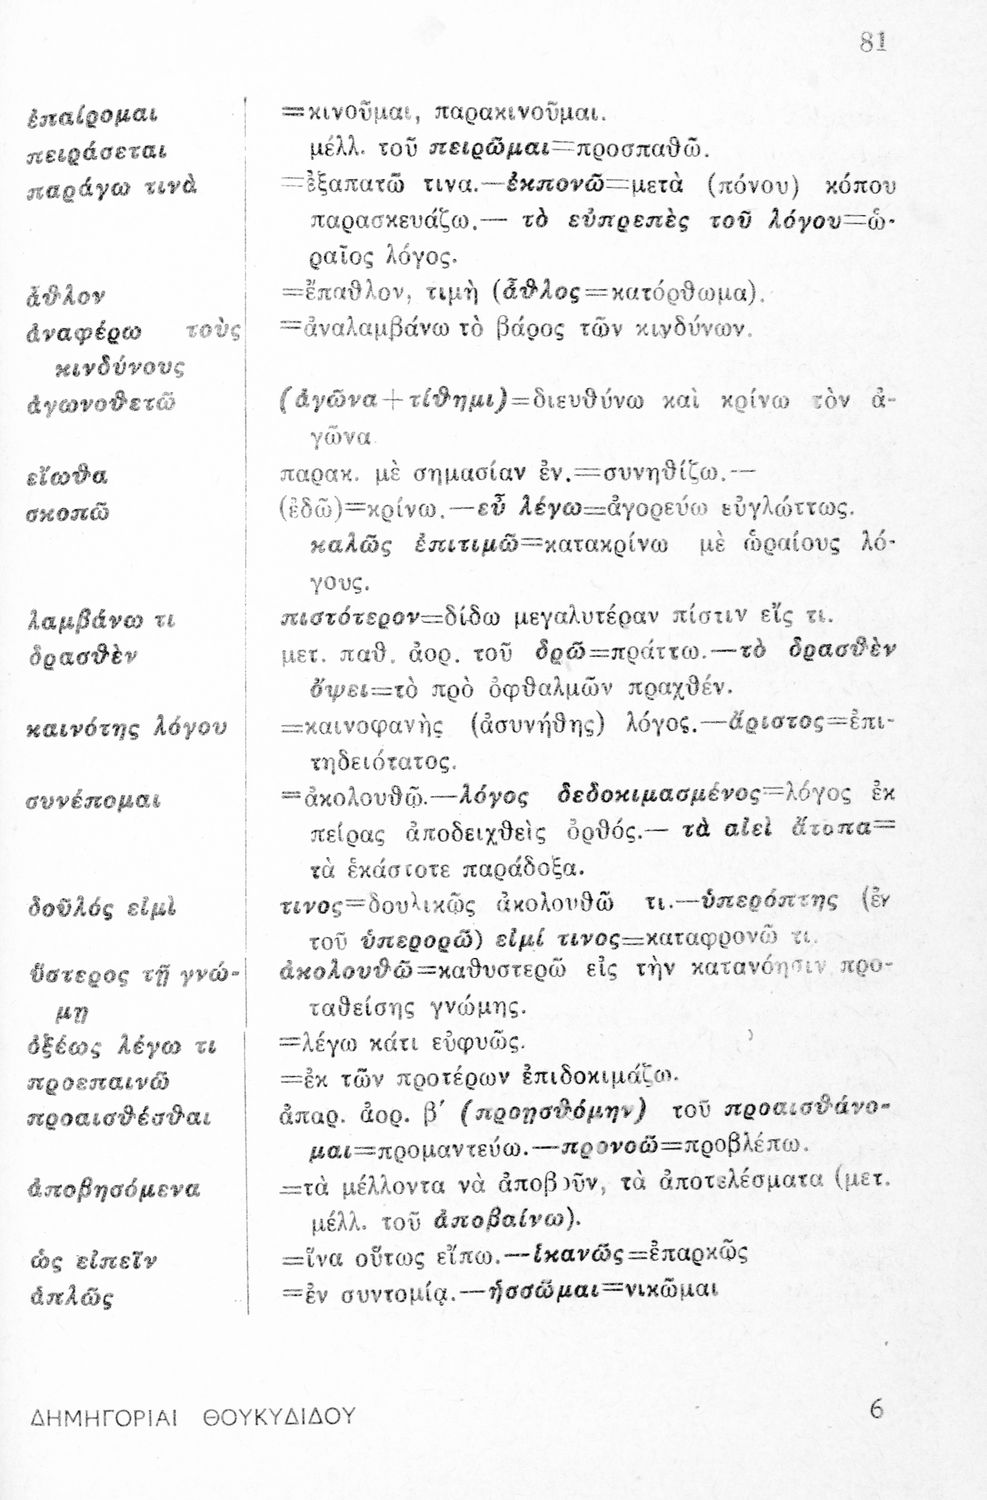 81
ἐπαίρομαι =κινοῦμαι, παρακινοῦμαι.
πειράσεται μέλλ. τοῦ πειρῶμαι=προσπαθῶ.
παράγω τινὰ =ἐξαπατῶ τινα.—ἐκπονῶ=μετὰ (πόνου) κόπου
παρασκευάζω.— τὸ εὐπρεπὲς τοῦ λόγου=ὡ-
ραῖος λόγος.
ἆθλον =ἔπαθλον, τιμὴ (ἆθλος=κατόρθωμα).
ἀναφέρω τοὺς =ἀναλαμβάνω τὸ βάρος τῶν κινδύνων.
κινδύνους
ἀγωνοθετῶ (ἀγῶνα+τίθημι)=διευθύνω καὶ κρίνω τὸν ἀ-
γῶνα
εἴωθα παρακ. μὲ σημασίαν ἐν.=συνηθίζω.—
σκοπῶ (ἐδῶ)=κρίνω.—εὖ λέγω=ἀγορεύω εὐγλώττως.
καλῶς ἐπιτιμῶ=κατακρίνω μὲ ὡραίους λό-
γους.
λαμβάνω τι πιστότερον=δίδω μεγαλυτέραν πίστιν εἴς τι.
δρασθὲν μετ. παθ. ἀορ. τοῦ δρῶ=πράττω.—τὸ δρασθὲν
ὄψει=τὸ πρὸ ὀφθαλμῶν πραχθέν.
καινότης λόγου =καινοφανὴς (ἀσυνήθης) λόγος.—ἄριστος=ἐπι-
τηδειότατος.
συνέπομαι =ἀκολουθῶ.—λόγος δεδοκιμασμένος=λόγος ἐκ
πείρας ἀποδειχθεὶς ὀρθός.— τὰ αἰεὶ ἄτοπα=
τὰ ἑκάστοτε παράδοξα.
δοῦλός εἰμὶ τινος=δουλικῶς ἀκολουθῶ τι.—ὑπερόπτης (ἐν
τοῦ ὑπερορῶ) εἰμί τινος=καταφρονῶ τι.
ὕστερος τῇ γνώ- ἀκολουθῶ=καθυστερῶ εἰς τὴν κατανόησιν προ-
μῃ ταθείσης γνώμης.
ὀξέως λέγω τι =λέγω κάτι εὐφυῶς.
προεπαινῶ =ἐκ τῶν προτέρων ἐπιδοκιμάζω.
προαισθέσθαι ἀπαρ. ἀορ. β′ (προῃσθόμην) τοῦ προαισθάνο-
μαι=προμαντεύω.—προνοῶ=προβλέπω.
ἀποβησόμενα =τὰ μέλλοντα νὰ ἀποβοῦν, τὰ ἀποτελέσματα (μετ.
μέλλ. τοῦ ἀποβαίνω).
ὡς εἰπεῖν =ἵνα οὕτως εἴπω.—ἱκανῶς=ἐπαρκῶς
ἁπλῶς =ἐν συντομίᾳ.—ἡσσῶμαι=νικῶμαι
ΔΗΜΗΓΟΡΙΑΙ ΘΟΥΚΥΔΙΔΟΥ 6